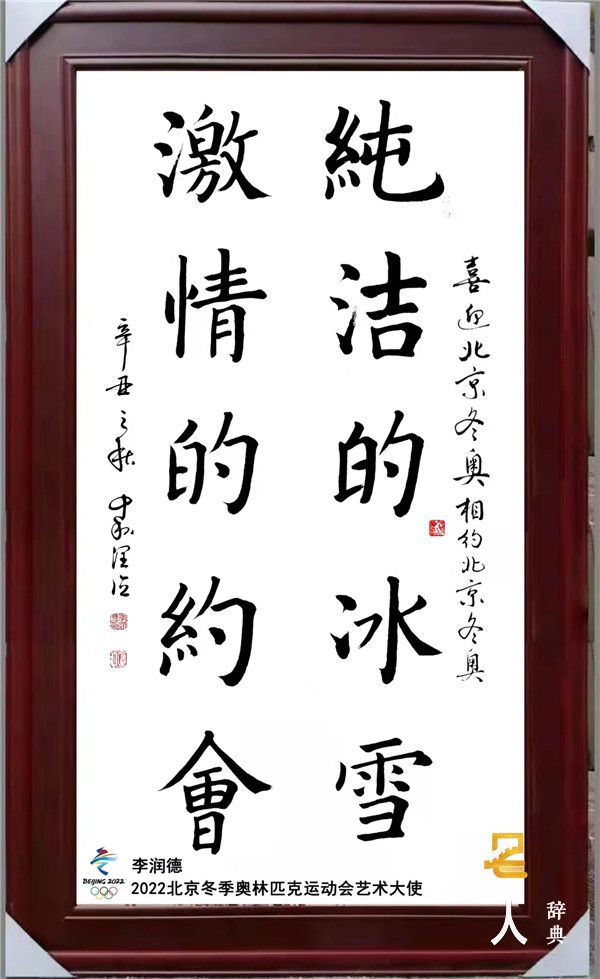 喜迎北京冬奥相约北京冬奥
純洁的冰雪
激情的約會
辛丑之秋 李润德
BEIJING 2022
李润德
2022北京冬季奥林匹克运动会艺术大使
名人
辞典